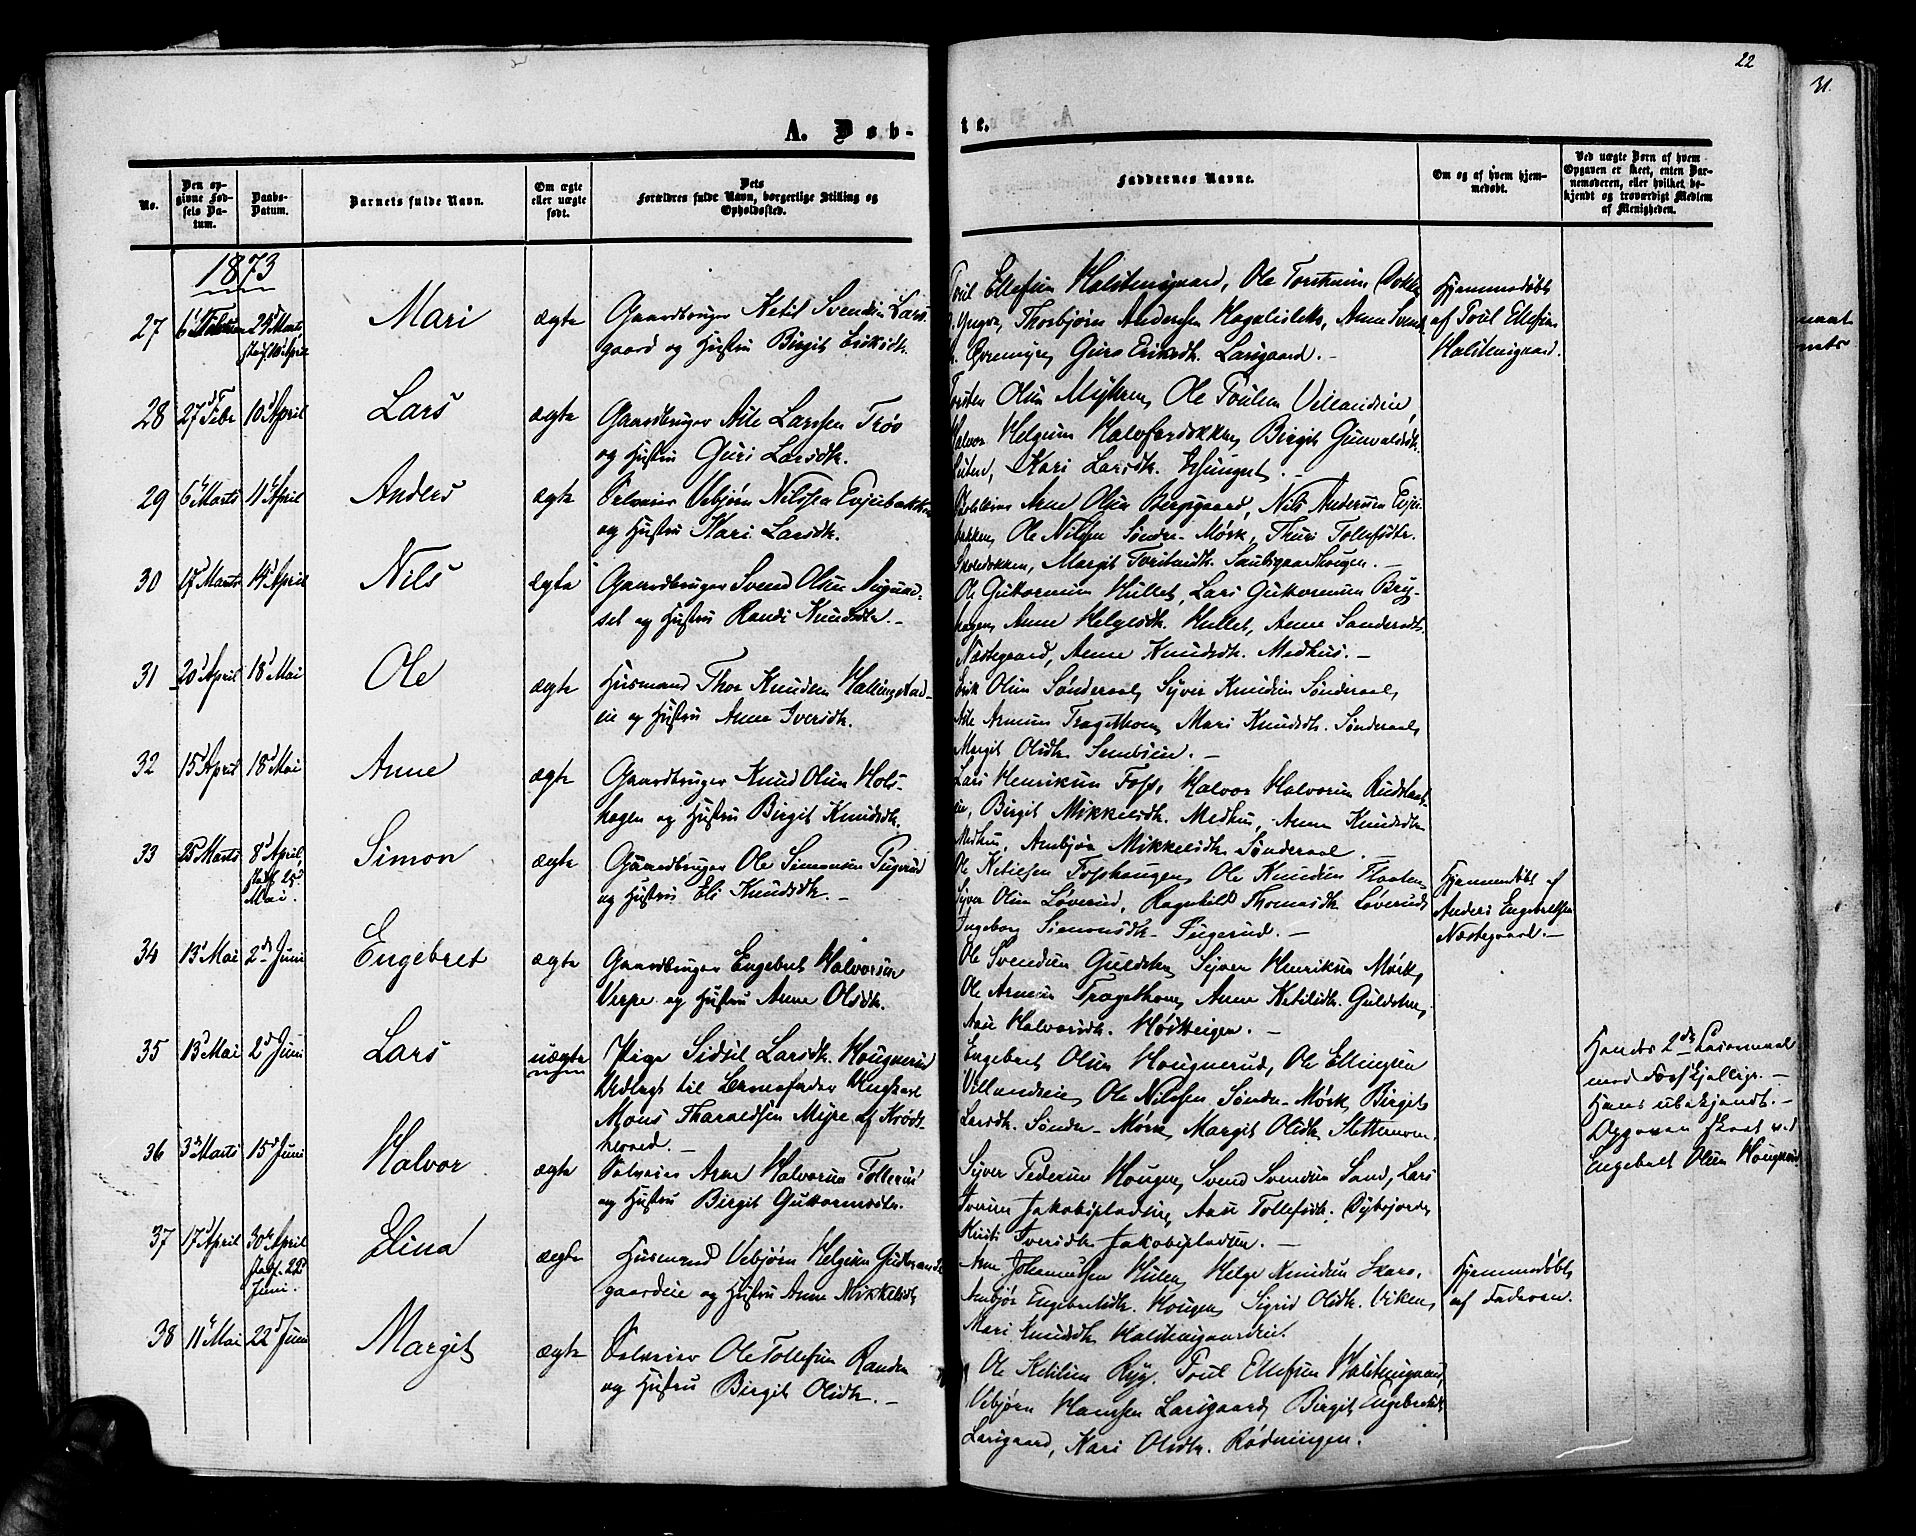 22
31.
A. Døb-
te.
No.
Den op-
givne Fød-
sels Da-
tum.
Daabs-
Datum.
Barnets fulde Navn.
Om ægte
eller uægte
født.
Dets
Forældres fulde Navn, borgerlige Stilling og
Opholdssted.
Faddernes Navne.
Om og af hvem hjem-
medøbt.
Ved uægte Børn af hvem
Opgaven er skeet, enten Bar-
nemoderen, eller hvilket be-
kjendt og troværdigt Medlem
af Menigheden.
1873
27
24 Marts
stadf. 10 April
Mari
ægte
Gaardbruger Ketil Svendsen Lars
gaard og Hustru Birgit Eriksdtr.
Poul Ellefsen Halstensgaard, Ole Torstensen
Thorbjørn Andersen Anne Svends
Guro Eriksdtr. Larsgaard. –
Hjemmedøbt
af Poul Ellefsen
Halstensgaard.
28
27d Febr
10d April
Lars
ægte
Gaardbruger Asle Larssen Trøo
og Hustru Guri Larsdtr.
Torsten Olsen Myhren, Ole Poulsen Villandseie,
Halvor Helgesen Birgit Gunvalsdtr.
Kari Larsdtr. –
29
6 Marts
11 April
Anders
ægte
Selveier Vebjørn Nilssen Evjebakken
og Hustru Kari Larsdtr.
Arne Olsen Bergsgaard, Nils Andersen Evje
bakken, Ole Nilssen Søndre-Mørk, Thuri Tollefsdtr.
Margit –
30
17d Marts
14d April
Nils
ægte
Gaardbruger Svend Olsen
set og Hustru Randi Knudsdtr. –
Ole Guttormsen Hullet, Lars Guttormsen Bry-
hagen, Anne Helgesdtr. Hullet, Anne Sandersdtr.
Næstegaard, Anne Knudsdtr. Medhus. –
31
20d April
18d Mai
Ole
ægte
Husmand Thor Knudsen Hallingstad-
eie og Hustru Anne Iversdtr.
Erik Olsen Sønderaal, Syver Knudsen Sønderaal,
Asle Arnesen Tragethon, Mari Knudsdtr. Sønderaal,
Margit Olsdtr. –
32
15d April
18d Mai
Anne
ægte
Gaardbruger Knud Olsen Hols-
hagen og Hustru Birgit Knudsdtr.
Lars Henriksen Toft, Halvor Halvorsen
Birgit Mikkelsdtr. Medhus, Anne Knudsdtr.
Medhus, Ambjør Mikkelsdtr. Sønderaal.
33
25 Marts
8d April,
stadf. 25d
Mai.
Simon
ægte
Gaardbruger Ole Simonsen Pugerud
og Hustru Eli Knudsdtr. –
Ole Ketilsen Ole Knudsen Flaaten,
Syver Olsen Løverud, Ragnhild Thomasdtr. Løverud,
Ingeborg Simonsdtr. Pugerud. –
Hjemmedøbt af
Anders Engebretsen
Næstegaard. –
34
13d Mai
2den Juni
Engebret
ægte
Gaardbruger Engebret Halvorsen
Verpe og Hustru Anne Olsdtr.
Ole Svendsen Guldsten, Syver Henriksen Mørk,
Ole Arnesen Tragethon, Anne Ketilsdtr. Guldsten,
Aase Halvorsdtr. –
35
13d Mai
2d Juni
Lars
uægte
Pige Sidsel Larsdtr. Hougnerud
Udlagt til Barnefader Ungkarl
Mons Tharaldsen Myre af Krøds-
hered. –
Engebret Olsen Hougnerud, Ole Ellingsen
Villandseie, Ole Nilssen Søndre-Mørk, Birgit
Larsdtr. Søndre-Mørk, Margit Olsdtr.
Hendes 2det Leiermaal
med Forskjellige. –
Hans ubekjendt. –
Opgaven skeet ved
Engebret Olsen Hougnerud
36
3die Marts
15d Juni
Halvor
ægte
Selveier Arne Halvorsen Tollerud
og Hustru Birgit Guttormsdtr.
Syver Pedersen Hougen, Svend Svendsen Sand, Lars
Iversen Jakobspladsen, Aase Tollefsdtr.
Kristi Iversdtr. Jakobspladsen. –
37
17d April
30te April
stadf. 22d
Juni.
Elina
ægte
Husmand Vebjørn Helgesen
gaardeie og Hustru Anne Mikkelsdtr.
Arne Johannessen Hulen, Helge Knudsen Skaro,
Ambjør Engebretsdtr. Hougen, Sigrid Olsdtr. Viken,
Mari Knudsdtr. Halstensgaardeie.
Hjemmedøbt
af Faderen.
38
11te Mai
22d Juni
Margit
ægte
Selveier Ole Tollefsen Randen
og Hustru Birgit Olsdtr. –
Ole Ketilsen Ryg. Poul Ellefsen Halstensgaard,
Vebjørn Hanssen Larsgaard, Birgit Engebretsdtr.
Larsgaard, Kari Olsdtr. Rødningen.